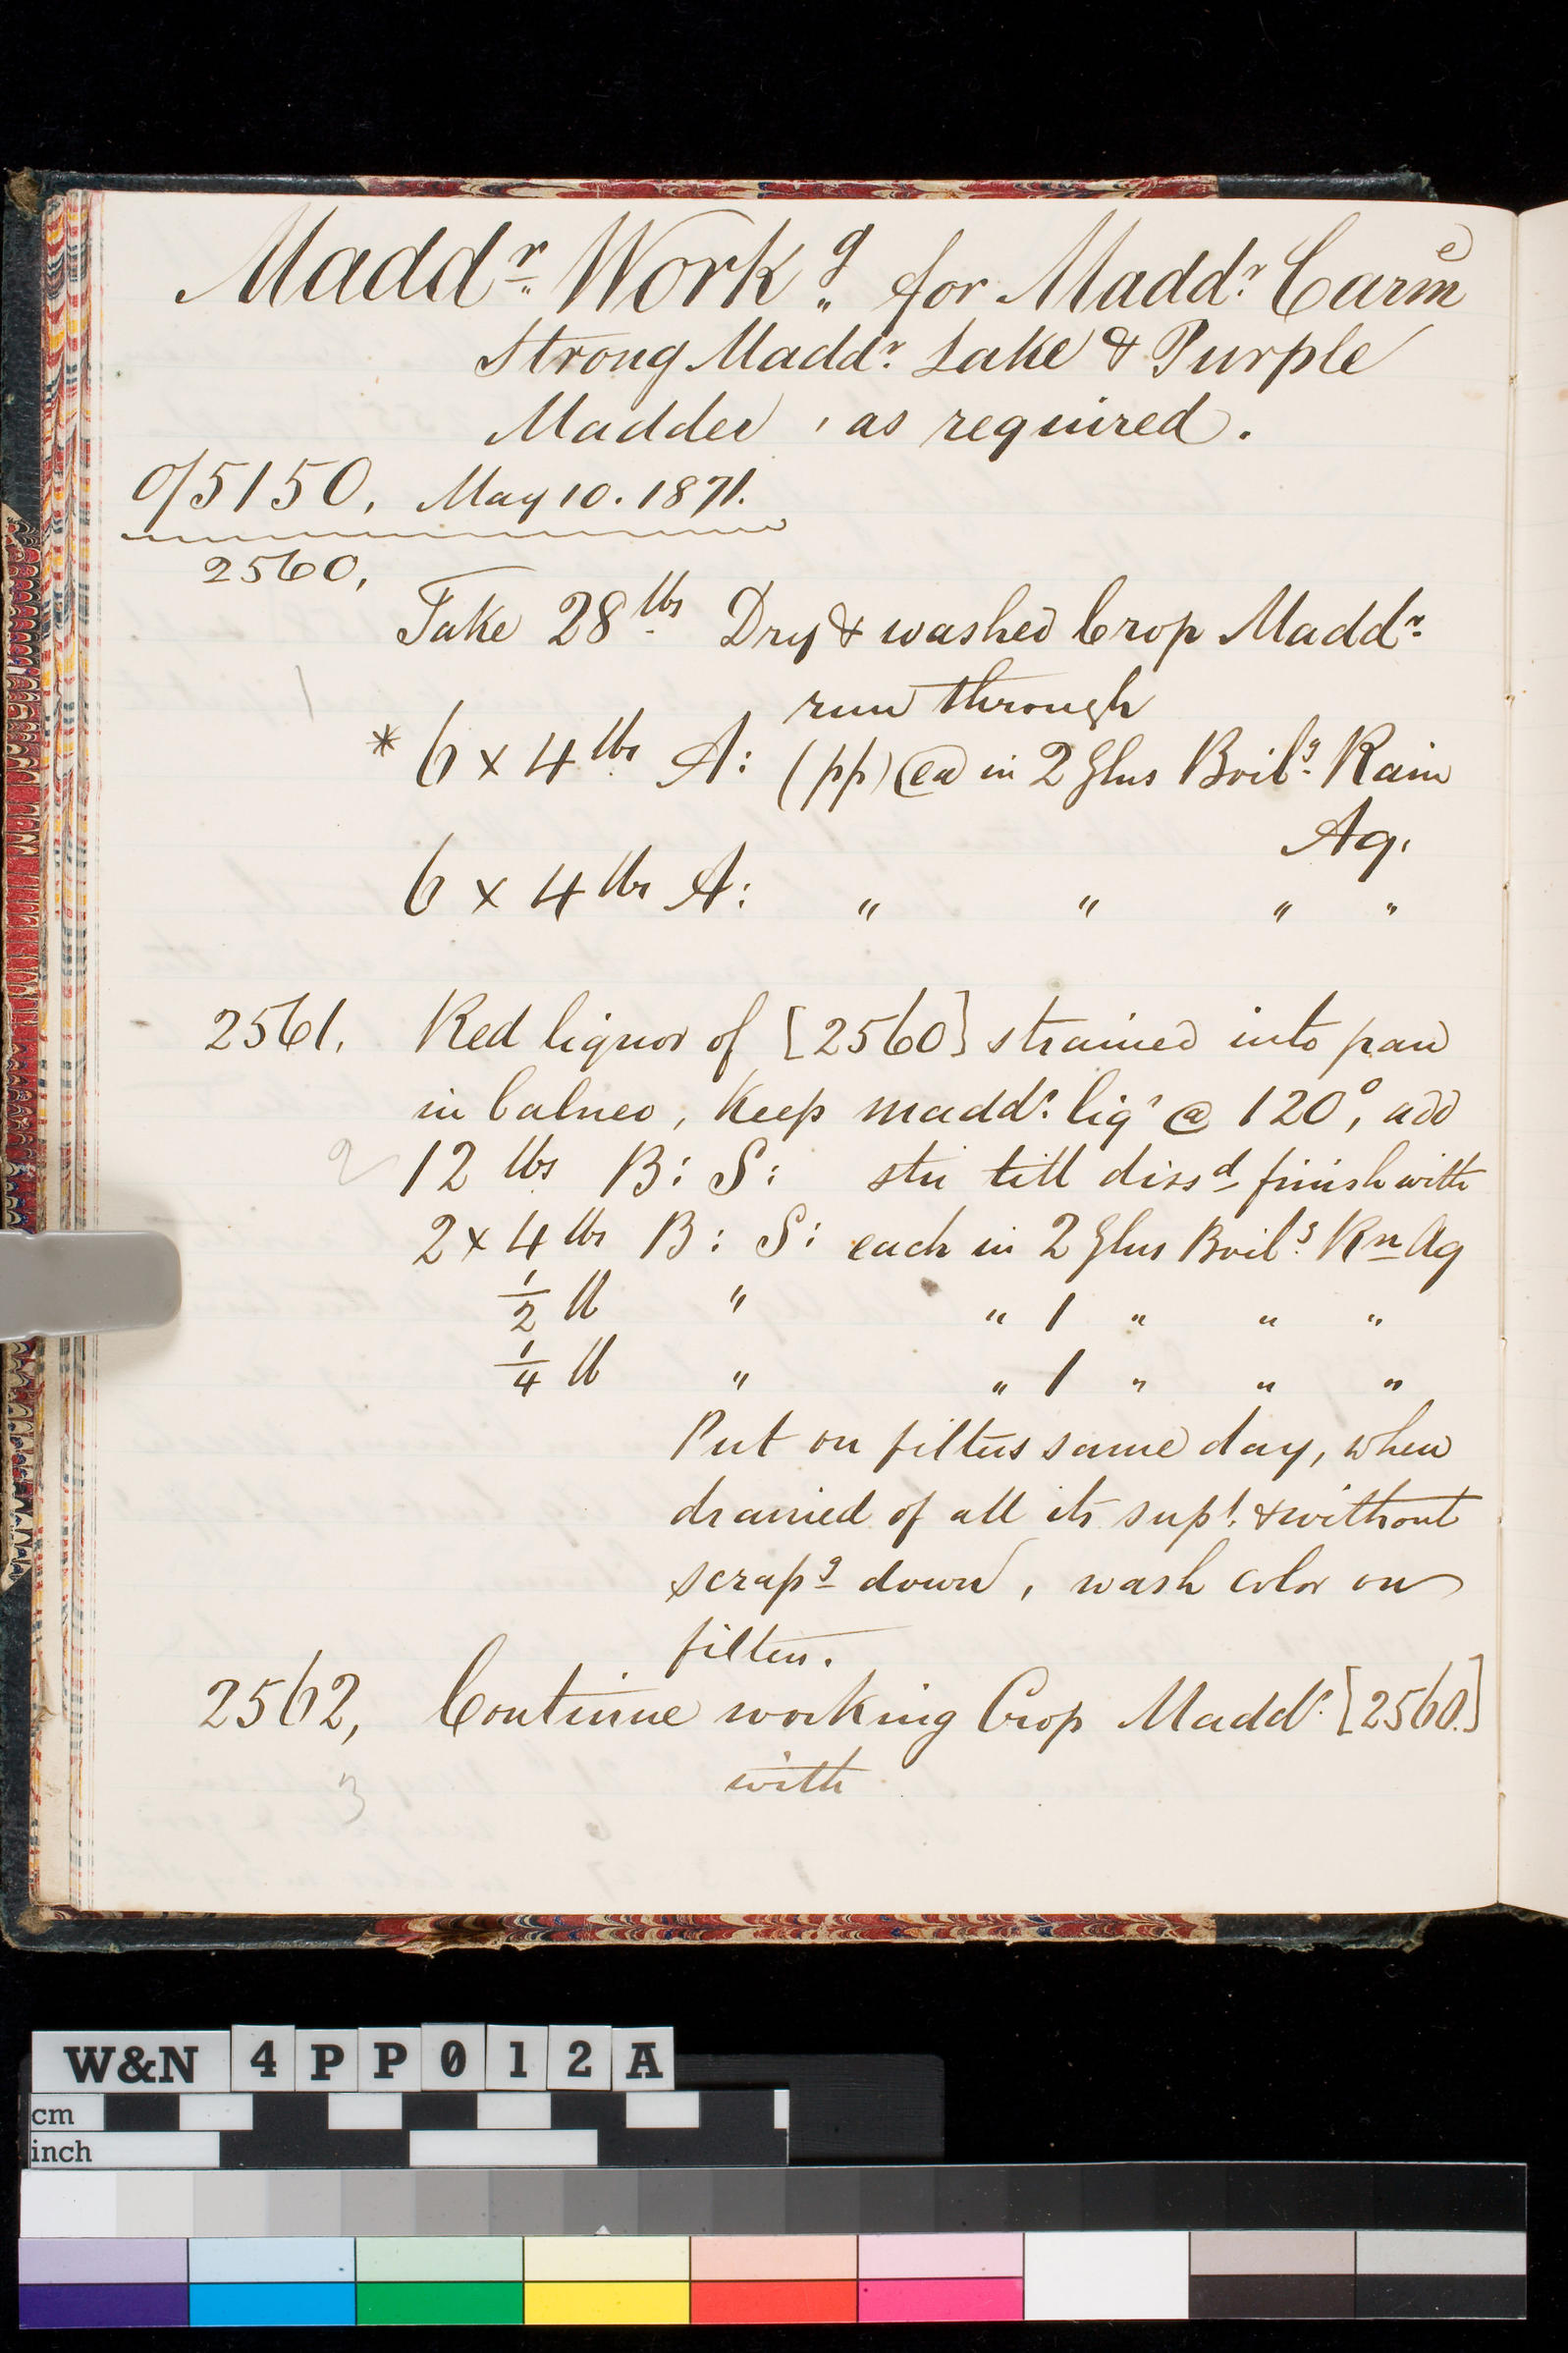 Madd.r Work.g for Madd.r Carm e
Strong Madd.r Lake & Purple
Madder, as required.
o/5150, May 10. 1871.
2560,
Take 28 lbs Dry & washed Crop Madd.r
1
run through
* 6 x 4 lbs A: (pp) ea in 2 Glns Boil.g Rain
Aq.
6 x 4 lbs A: " " " "
2561, Red liquor of [2560] strained into pan
in balneo, Keep madd.r liq.r @ 120°, add
2 12 lbs B: S: stir till diss.d finish with
2 x 4 lbs B: S: each in 2 Glns Boil.g Rn Aq
1/2 lb " " 1 " " "
1/4 lb " " 1 " " "
Put on filters same day, when
drained of all its sup.t & without
scrap.g down, wash color on
filter.
2562, Continue working Crop Madd.r [2560.]
3
with
W&N 4PP012A
cm
inch